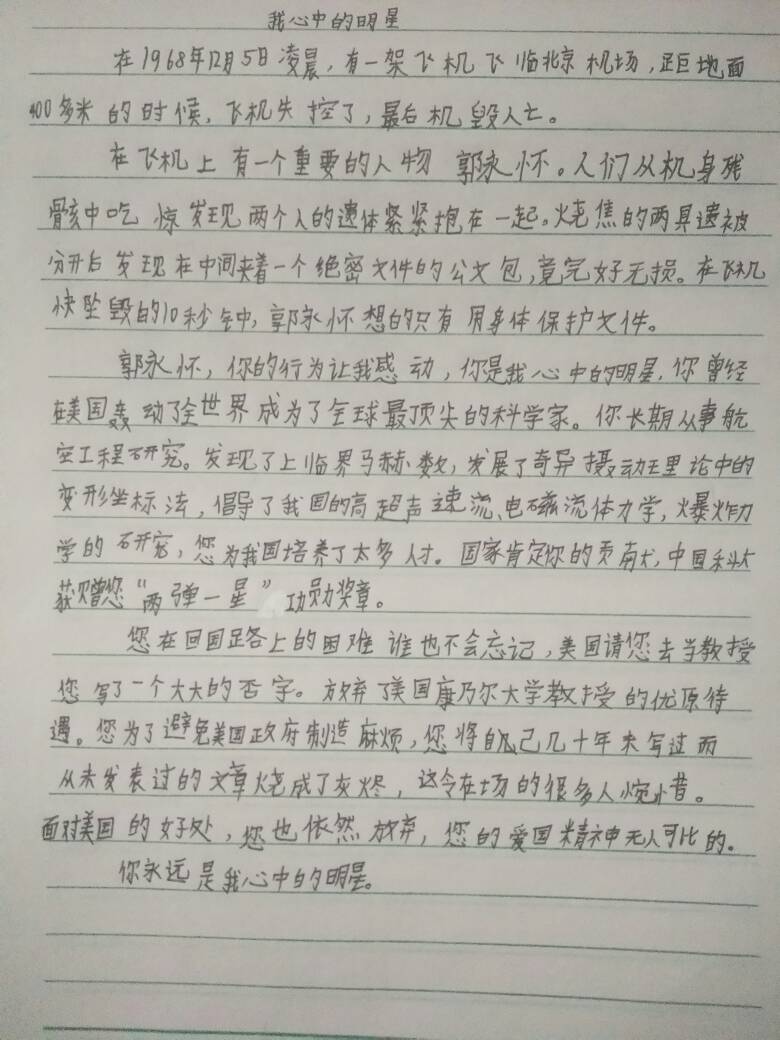 我心中的明星
在1968年12月5日凌晨，有一架飞机飞临北京机场，距地面
400多米的时候，飞机失控了，最后机毁人亡。
在飞机上有一个重要的人物郭永怀。人们从机身残
骸中吃惊发现两个人的遗体紧紧抱在一起。烧焦的两具遗被
分开后发现在中间夹着一个绝密文件的公文包，竟完好无损。在飞机
快坠毁的10秒钟，郭永怀想的只有用身体保护文件。
郭永怀，你的行为让我感动，你是我心中的明星，你曾经
在美国轰动了全世界成为了全球最顶尖的科学家。你长期从事航
空工程研究。发现了上临界马赫数，发展了奇异摄动理论中的
变形坐标法，倡导了我国的高超声速流、电磁流体力学，爆炸力
学的研究，您为我国培养了太多人才。国家肯定你的贡献，中国科大
获赠您“两弹一星”功勋奖章。
您在回国路上的困难谁也不会忘记，美国请您去当教授
您写了一个大大的否字。放弃了美国康乃尔大学教授的优厚待
遇。您为了避免美国政府制造麻烦，您将自己几十年来写过而
从未发表过的文章烧成了灰烬，这令在场的很多人惋惜。
面对美国的好处，您也依然放弃，您的爱国精神无人可比的。
你永远是我心中的明星。